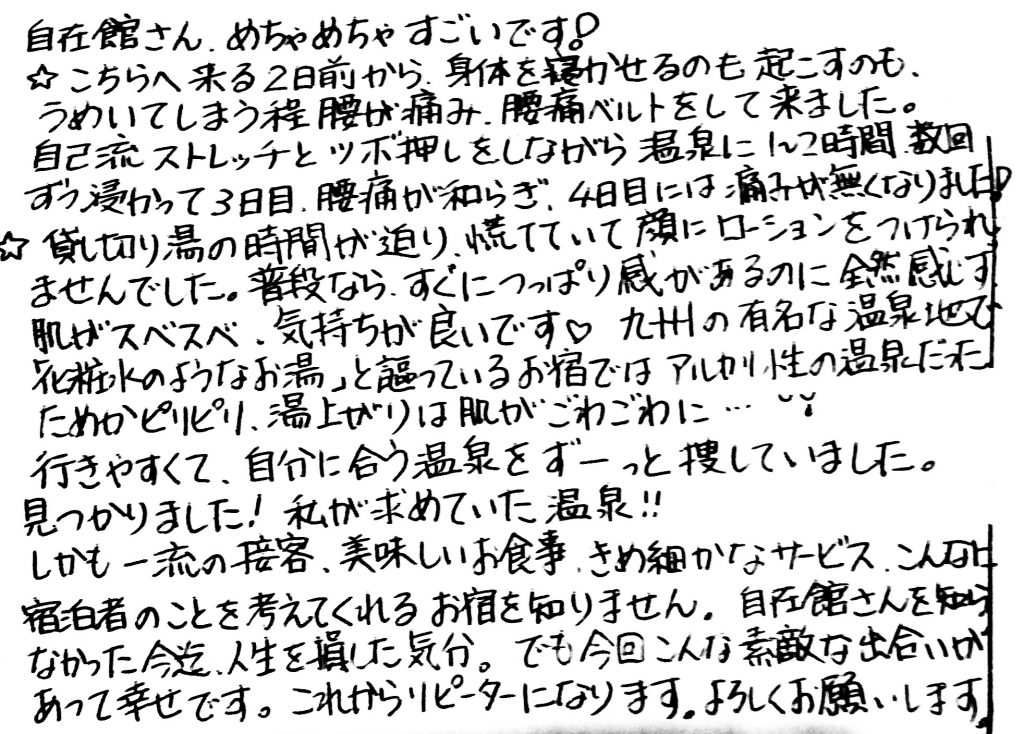 自在館さん、めちゃめちゃすごいです!
☆こちらへ来る2日前から、身体を寝かせるのも起こすのも、
うめいてしまう程腰が痛み、腰痛ベルトをして来ました。
自己流ストレッチとツボ押しをしながら温泉に1~2時間、数回
ずつ浸かって3日目、腰痛が和らぎ、4日目には痛みが無くなりました!
☆貸し切り湯の時間が迫り、慌てていて顔にローションをつけられ
ませんでした。普段なら、すぐにつっぱり感があるのに全然感じず
肌がスベスベ、気持ちが良いです♡ 九州の有名な温泉地で
「化粧水のようなお湯」と謳っているお宿ではアルカリ性の温泉だった
ためかピリピリ、湯上がりは肌がごわごわに…
行きやすくて、自分に合う温泉をずーっと捜していました。
見つかりました! 私が求めていた温泉!!
しかも一流の接客、美味しいお食事、きめ細かなサービス、こんなに
宿泊者のことを考えてくれるお宿を知りません。自在館さんを知ら
なかった今迄、人生を損した気分。でも今回こんな素敵な出合いが
あって幸せです。これからリピーターになります。よろしくお願いします。